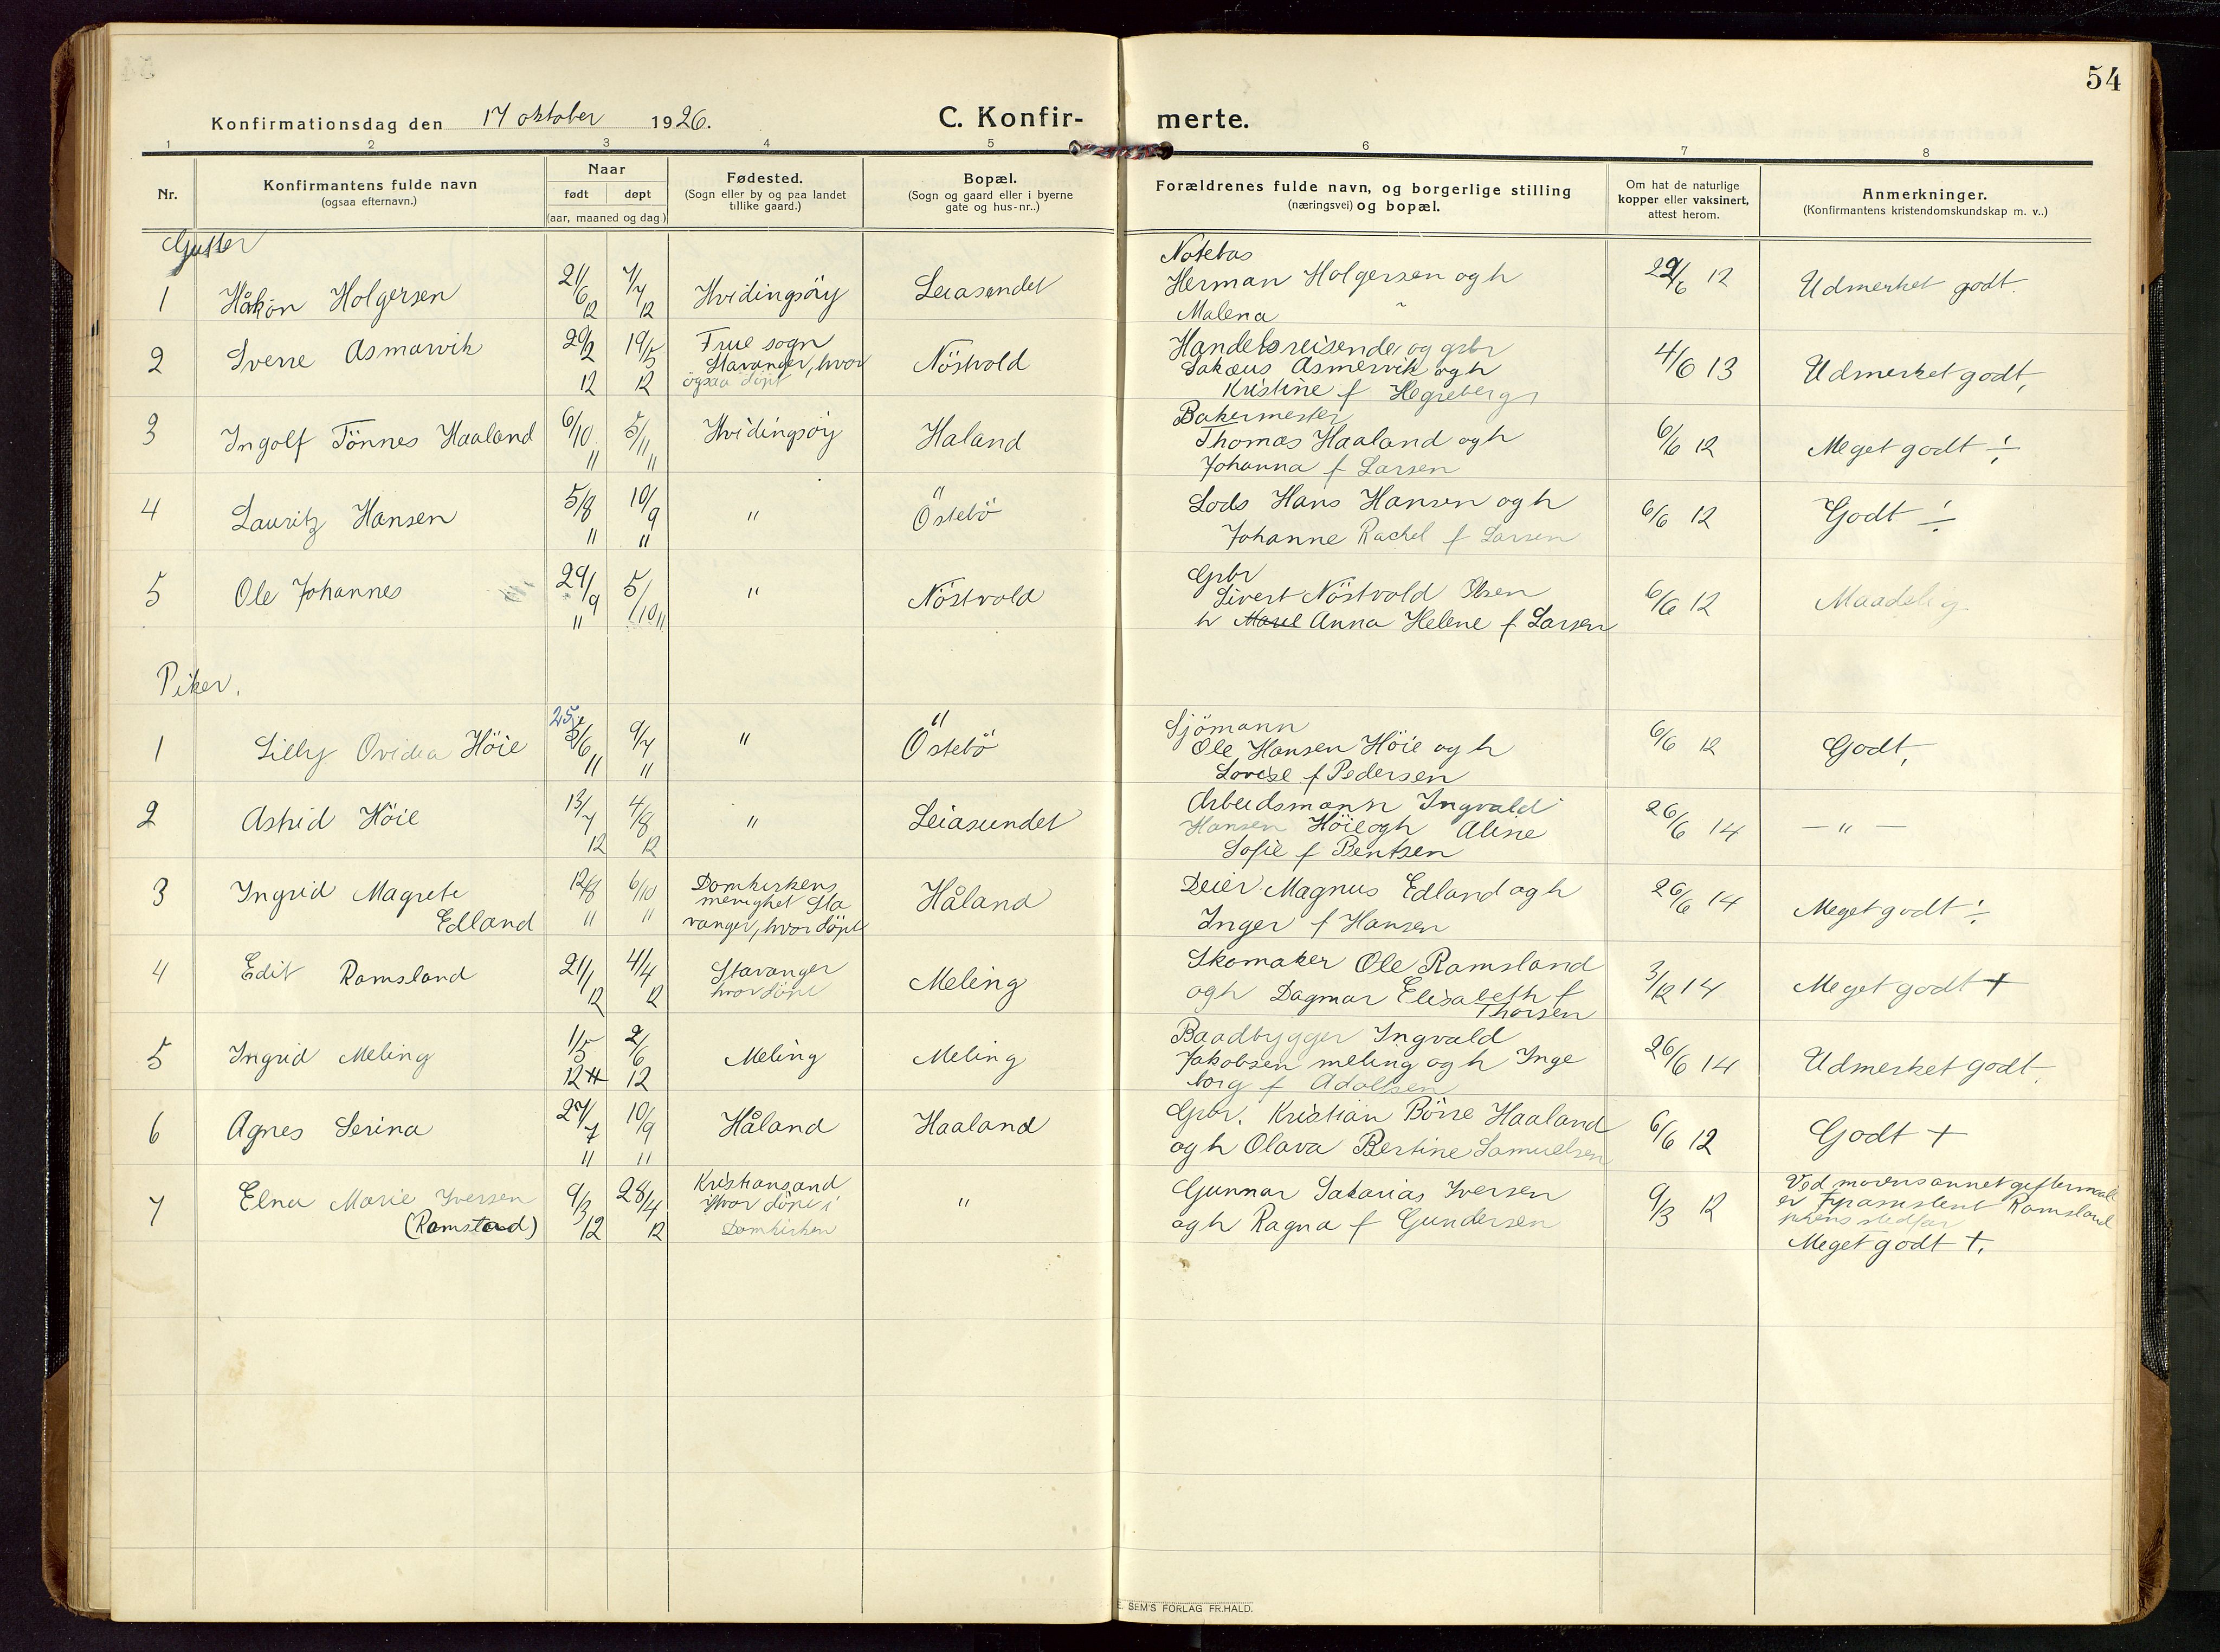 54
Konfirmationsdag den 17 oktober 1926.
C. Konfir- merte.
1 2 3 4 5 6 7 8
Nr.
Konfirmantens fulde navn
(ogsaa efternavn.)
Naar
født døpt
(aar, maaned og dag.)
Fødested.
(Sogn eller by og paa landet
tillike gaard.)
Bopæl.
(Sogn og gaard eller i byerne
gate og hus-nr..)
Forældrenes fulde navn, og borgerlige stilling
(næringsvei) og bopæl.
Om hat de naturlige
kopper eller vaksinert,
attest herom.
Anmerkninger.
(Konfirmantens kristendomskundskap m. v..)
Gutter
1 Håkon Holgersen 21/6 12 7/7 12 Hvidingsöy Leiasundet
Notebas
Herman Holgersen og h
Malena "
29/6 12 Udmerket godt.
2 Sverre Asmarvik 29/2 12 19/5 12
Frue sogn
Stavanger, hvor
ogsaa döpt
Nöstvold
Handelsreisende og gsbr
Sakæus Asmervik og h
Kristine f Hegreberg
4/6 13 Udmerket godt,
3 Ingolf Tönnes Haaland 6/10 11 5/11 11 Hvidingsöy Haland
Bakermester
Thomas Haaland og h
Johanna f Larsen
6/6 12 Meget godt ÷
4 Lauritz Hansen 5/8 11 10/9 11 " " Östebö
Lods Hans Hansen og h
Johanne Rachel f Larsen
6/6 12 Godt ÷
5 Ole Johannes 29/9 11 5/10 11 " Nöstvold
Gsbr
Sivert Nöstvold Olsen
h Anna Helene f Larsen
6/6 12 Maadelig
Piker.
1 Lilly Ovidia Höie 25/6 11 9/7 11 " " Östebö
Sjömann
Ole Hansen Höie og h
Lovise f Pedersen
6/6 12 Godt,
2 Astrid Höie 13/7 12 4/8 12 " Leiasundet
Arbeidsmann Ingvald
Hansen Höie og h Aline
Sofie f Bentsen
26/6 14 — " —
3 Ingrid Magrete
Edland
12/8 11 6/10 11
Domkirkens
menighet Sta
vanger, hvor döpt
Håland
Deier Magnus Edland og h
Inger f Hansen
26/6 14 Meget godt ÷
4 Edit Ramsland 21/1 12 4/4 12
Stavanger
hvor döpt
Meling
Skomaker Ole Ramsland
og h Dagmar Elisabeth f
Thorsen
3/12 14 Meget godt +
5 Ingrid Meling 1/5 12 2/6 12 Meling Meling
Baadbygger Ingvald
Jakobsen meling og h Inge
borg f Adolfsen
26/6 14 Udmerket godt.
6 Agnes Serina 27/7 11 10/9 11 Håland Haaland
Gsbr. Kristian Börre Haaland
og h Olava Bertine Samuelsen
6/6 12 Godt +
7 Elna Marie Iversen
(Ramstad)
9/3 12 28/4 12
Kristiansand
hvor döpt i
Domkirken
"
Gunnar Sakarias Iversen
og h Ragna f Gundersen
9/3 12
Ved morens annet giftermaal
er Fyrassistent Ramsland
pikens stedfar
Meget godt +.
E. SEM'S FORLAG FR.HALD.